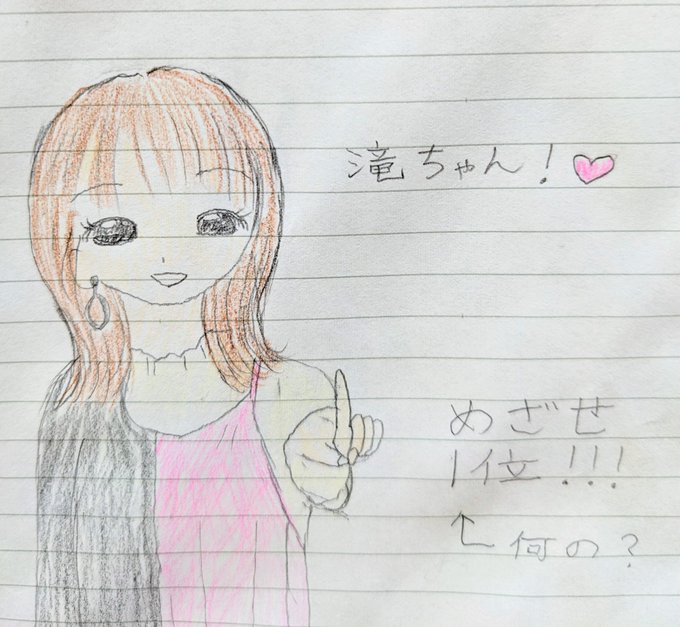 滝ちゃん!♥
めざせ
1位!!!
↑何の?